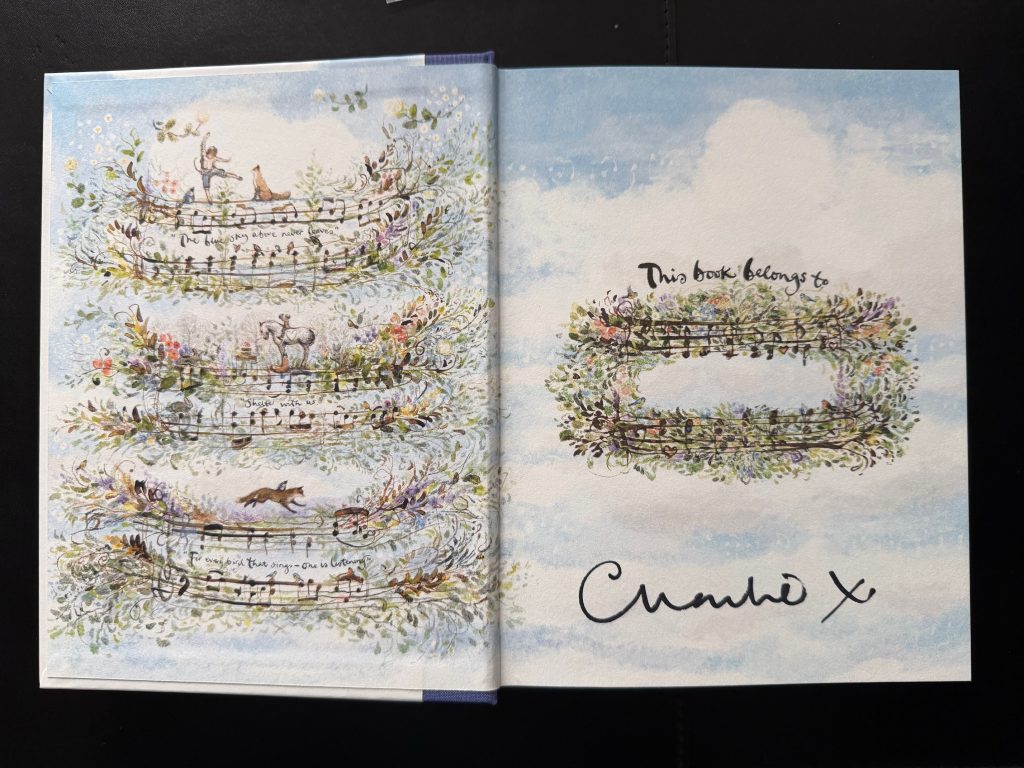 The blue sky above never leaves
Shelter with us
For every bird that sings – one is listening
This book belongs to
Charlie x